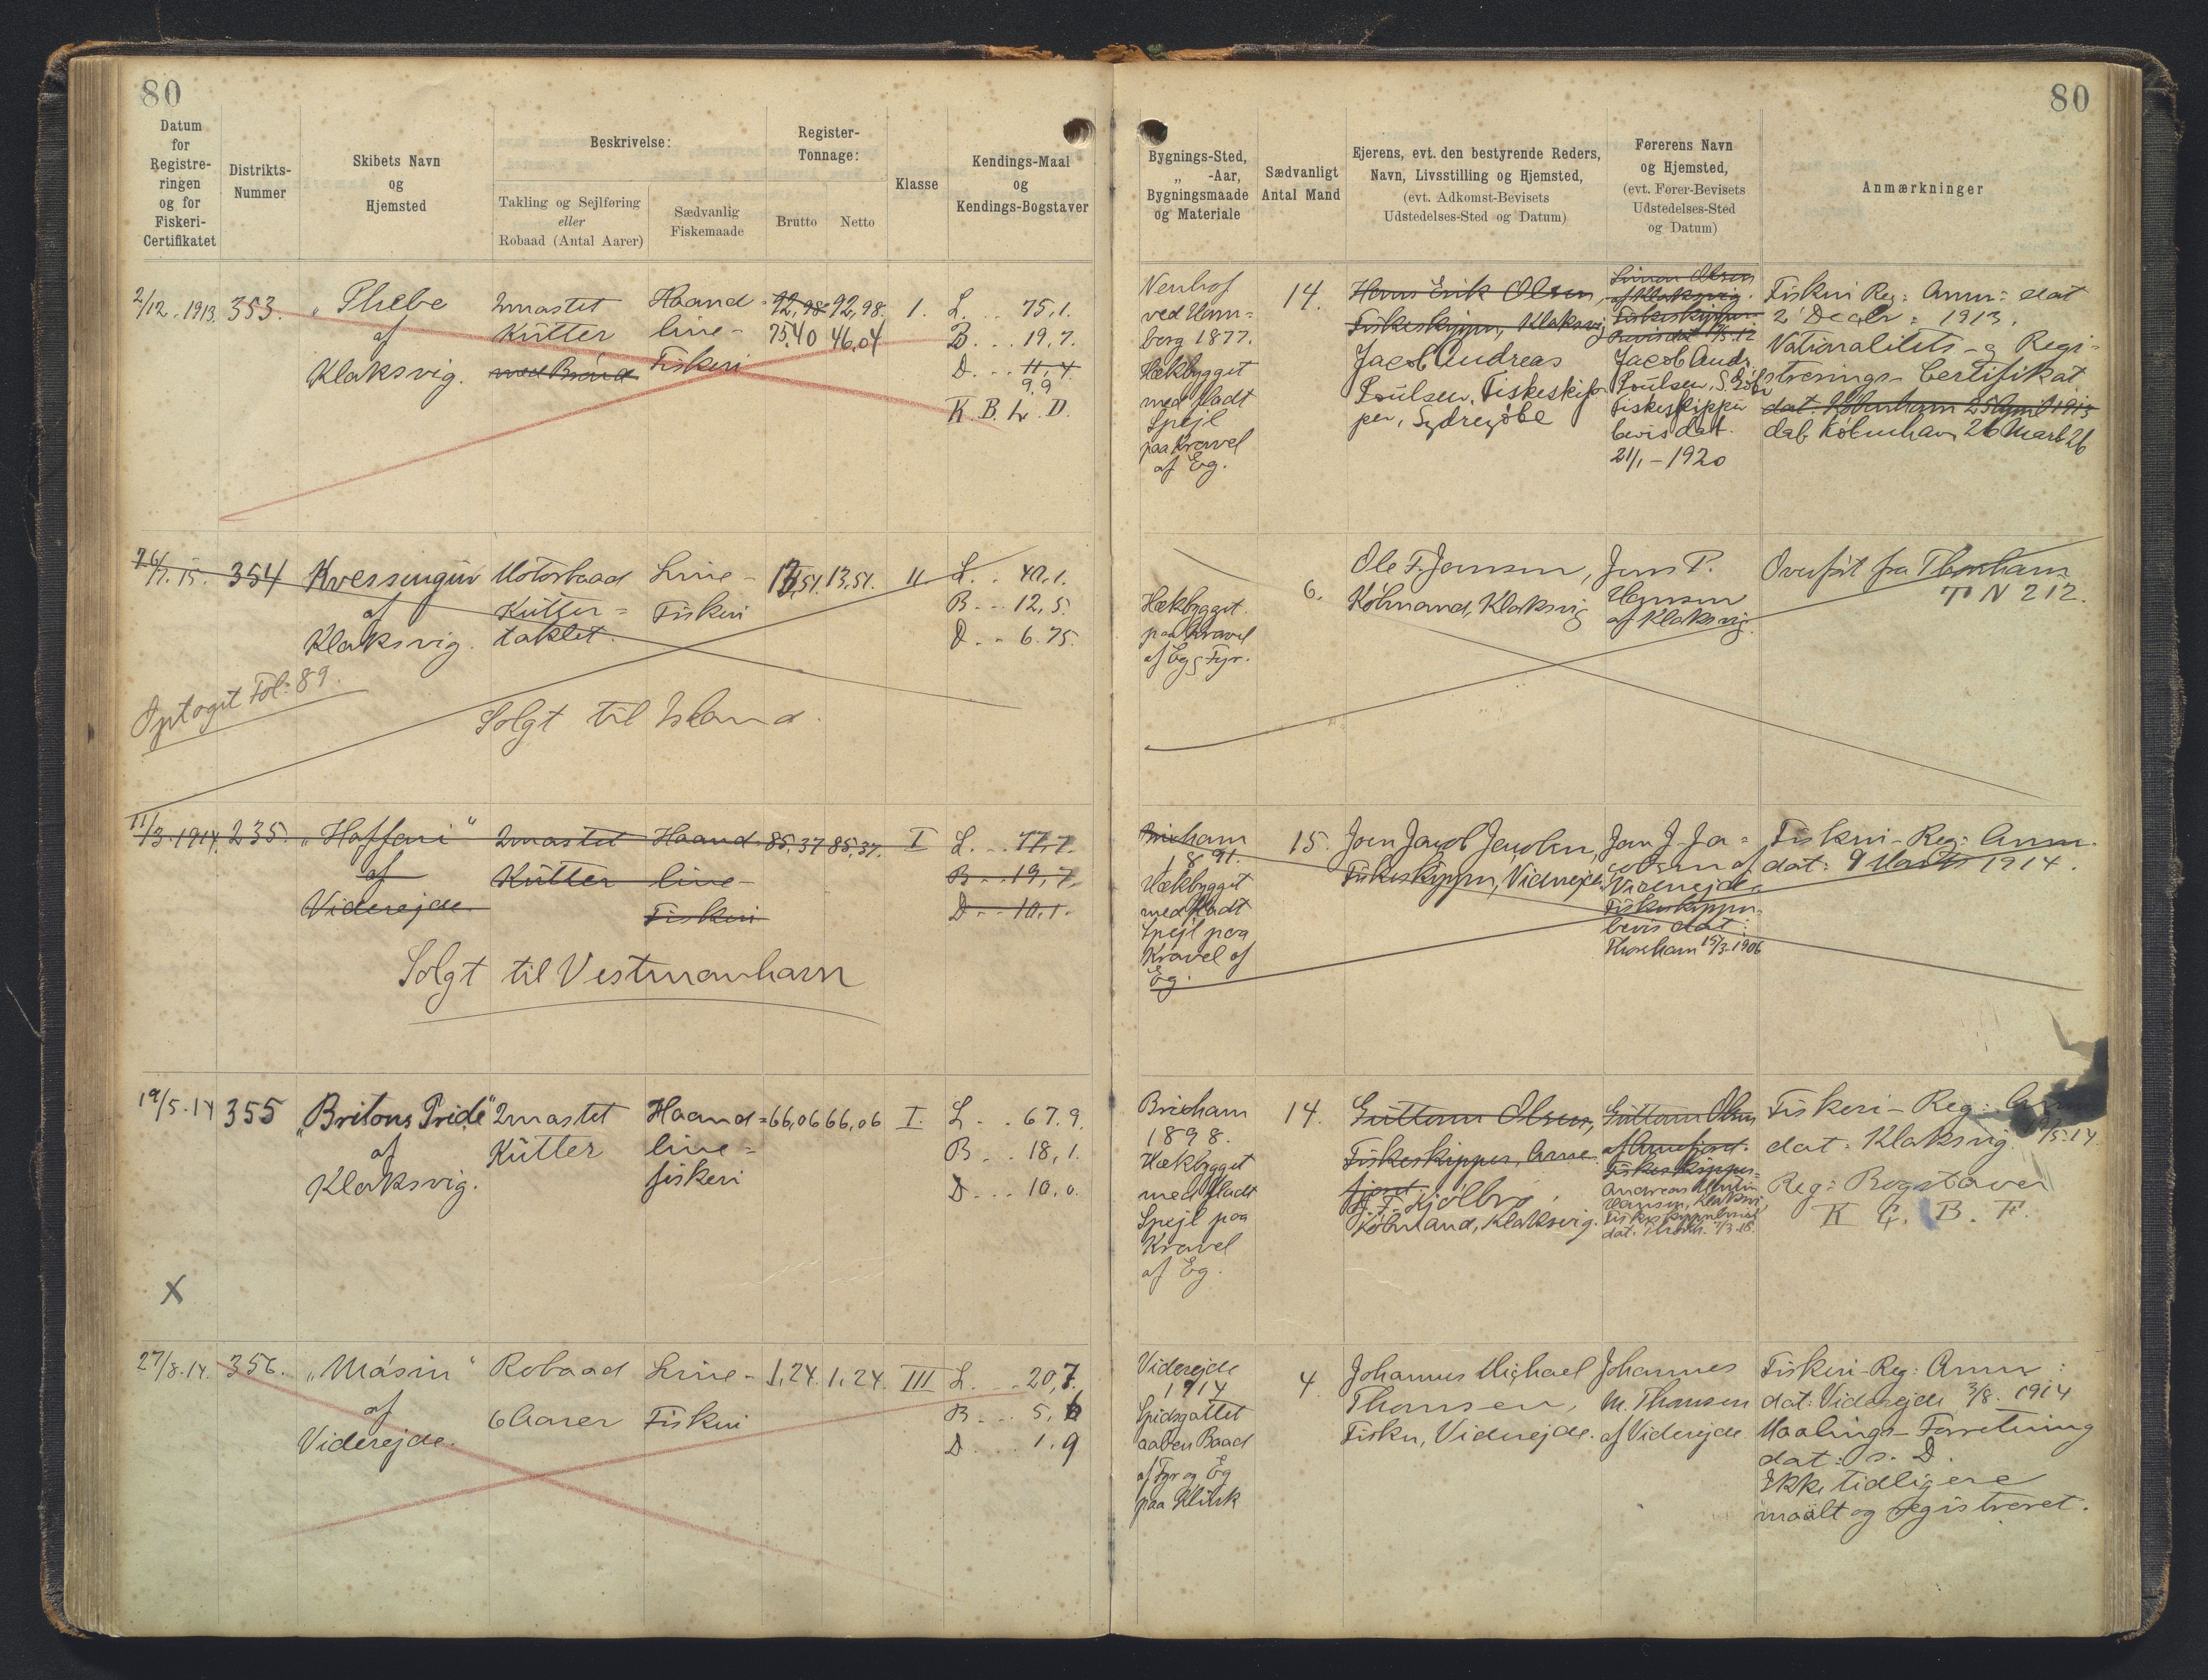 80
80
Datum
for
Registre-
ringen
og for
Fiskeri-
Certifikatet
Distrikts-
Nummer
Skibets Navn
og
Hjemsted
Beskrivelse:
Takling og Sejlføring
eller
Robaad (Antal Aarer)
Sædvanlig
Fiskemaade
Register-
Tonnage:
Brutto
Netto
Klasse
Kendings-Maal
og
Kendings-Bogstaver
Bygnings-Sted,
„ -Aar,
Bygningsmaade
og Materiale
Sædvanligt
Antal Mand
Ejerens, evt. den bestyrende Reders,
Navn, Livsstilling og Hjemsted,
(evt. Adkomst-Bevisets
Udstedelses-Sted og Datum)
Førerens Navn
og Hjemsted,
(evt. Fører-Bevisets
Udstedelses-Sted
og Datum)
Anmærkninger
2/12.1913.
353.
„Phebe
af
Klaksvig.
2mastet
Kutter
med Brönd
Haand-
line-
Fiskeri
92,98 92,98.
75,40 46,04
1.
L. .. 75,1.
B. .. 19,7.
D. .. 11,4
9,9
K. B. L. D.
ved
berg 1877.
Hækbygget
med fladt
Spejl
paa Kravel
af Eg.
14.
Hans Erik Olsen,
Fiskeskipper, Klaksvig
Jacob Andreas
Poulsen, Fiskeskip-
per, Sydregöbe
Simon Olsen
af Klaksvig.
Fiskeskipper-
Jacob Andr
Poulsen, S. Göbe
Fiskeskipper
bevis dat.
21/1 - 1920
Fiskeri Reg: Anm: dat
2' Decbr: 1913.
Nationalitets- og Regi-
strerings-Certifikat
dat. København 25 April 1913
dat. København 26 Marts 26
26/1.15.
354
Kvessingur
af
Klaksvig.
Motorbaad
Kutter-
taklet.
Line-
Fiskeri
13,51. 13,51.
II.
L. . 40,1.
B. .. 12,5.
D. . 6.75.
Hækbygget.
paa Kravel
af Eg og Fyr.
6.
Ole F. Jensen,
Købmand, Klaksvig
Jens P.
Hansen
af Klaksvig.
Overført fra Thorshavn
TN 212.
Optaget Fol: 89.
Solgt til Island.
11/3.1914.
235.
„Haffari"
af
Viderejde.
2mastet
Kutter
Haand-
line-
Fiskeri
85,37 85,37.
I
L. .. 77,7.
B. .. 19,7.
D. .. 10,1.
Brixham
1891.
Hækbygget
med fladt
Spejl paa
Kravel af
Eg.
15.
Joen Jacob Jacobsen,
Fiskeskipper, Viderejde.
Joen J. Ja-
cobsen af
Viderejde.
Fiskeskipper-
bevis dat:
Thorshavn 15/3.1906
Fiskeri-Reg: Anm.
dat: 9 Marts 1914.
Solgt til Vestmanhavn
19/5.14
355
„Britons Pride"
af
Klaksvig.
2mastet
Kutter
Haand-
line-
fiskeri
66,06 66,06
I.
L. . . 67.9.
B. . . 18,1.
D. . . 10,0.
Brixham
1898.
Hækbygget
med fladt
Spejl paa
Kravel
af Eg.
14.
Guttorm Olsen,
Fiskeskipper, Arne-
fjord.
J. F. Kjølbro,
Købmand, Klaksvig.
Guttorm Olsen
af Arnefjord.
Fiskeskipper-
Andreas
Hansen, Klaksvig
Fiskeskipperbevis
Fiskeri-Reg:
dat: Klaksvig. /5.14.
Reg: Bogstaver
K G. B. F.
X
27/8.14.
356.
„Másin"
af
Viderejde.
Robaad
6 Aarer
Line-
Fiskeri
1,24. 1,24.
III
L. . . 20,7.
B. . . 5,6
D. . . 1,9
Viderejde
1914
Spidsgattet
aaben Baad
af Fyr og Eg
paa Klink
4.
Johannes Michael
Thomsen,
Fisker, Viderejde.
Johannes
M. Thomsen
af Viderejde
Fiskeri-Reg: Anm:
dat: Viderejde 3/8. 1914
Maalings-Forretning
dat: s. D.
Ikke tidligere
maalt og registreret.